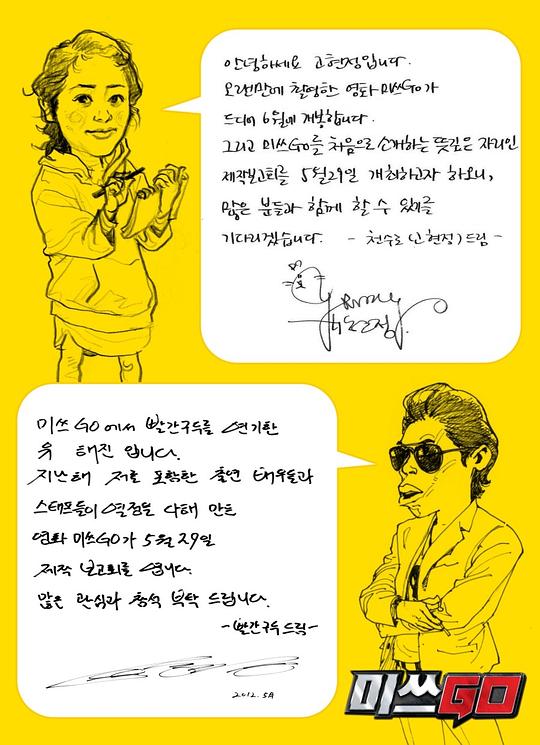 안녕하세요 고현정입니다.
오랜만에 촬영한 영화 미쓰GO가
드디어 6월에 개봉합니다.
그리고 미쓰GO를 처음으로 소개하는 뜻깊은 자리인
제작보고회를 5월29일 개최하고자 하오니,
많은 분들과 함께 할 수 있기를
기다리겠습니다. - 천수로 (고현정) 드림 -
고현정
미쓰 GO 에서 빨간구두를 연기한
유 해진 입니다.
지난해 저를 포함한 출연 배우들과
스태프들이 열정을 다해 만든
영화 미쓰GO가 5월 29일
제작 보고회를 엽니다.
많은 관심과 참석 부탁 드립니다.
-빨간구두 드림-
2012. 5月
미쓰GO